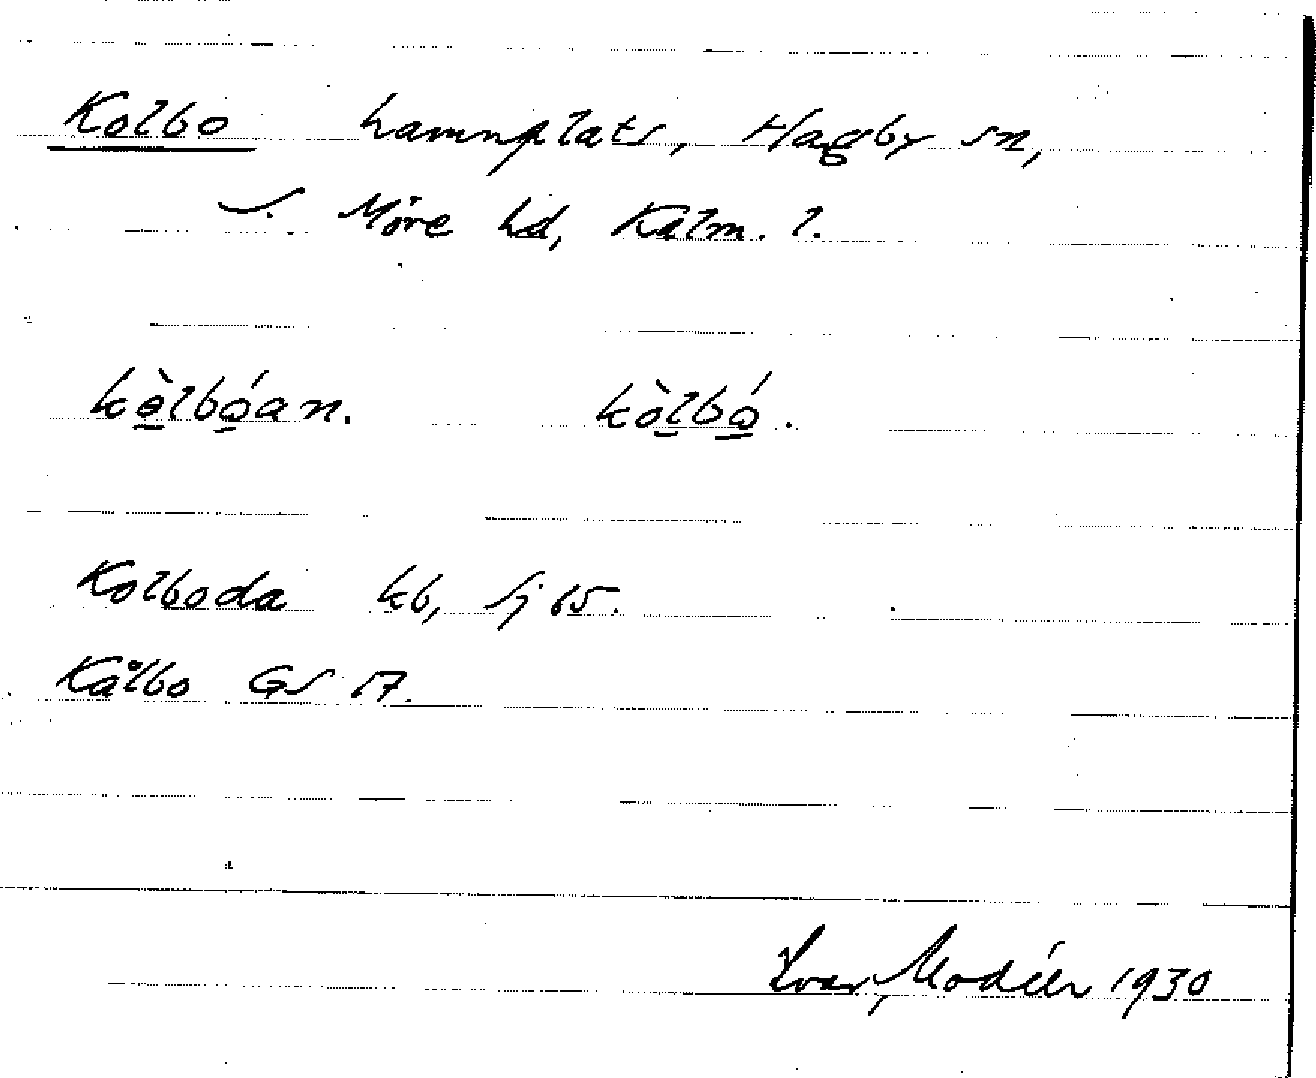 Kolbo hamnplats, Hagby sn,
S. Möre hd, Kalm. l.
kò̱lbó̱an. kò̱lbó̱.
Kolboda kb, sj 65.
Kålbo GS 17.
Ivar Modéer 1930